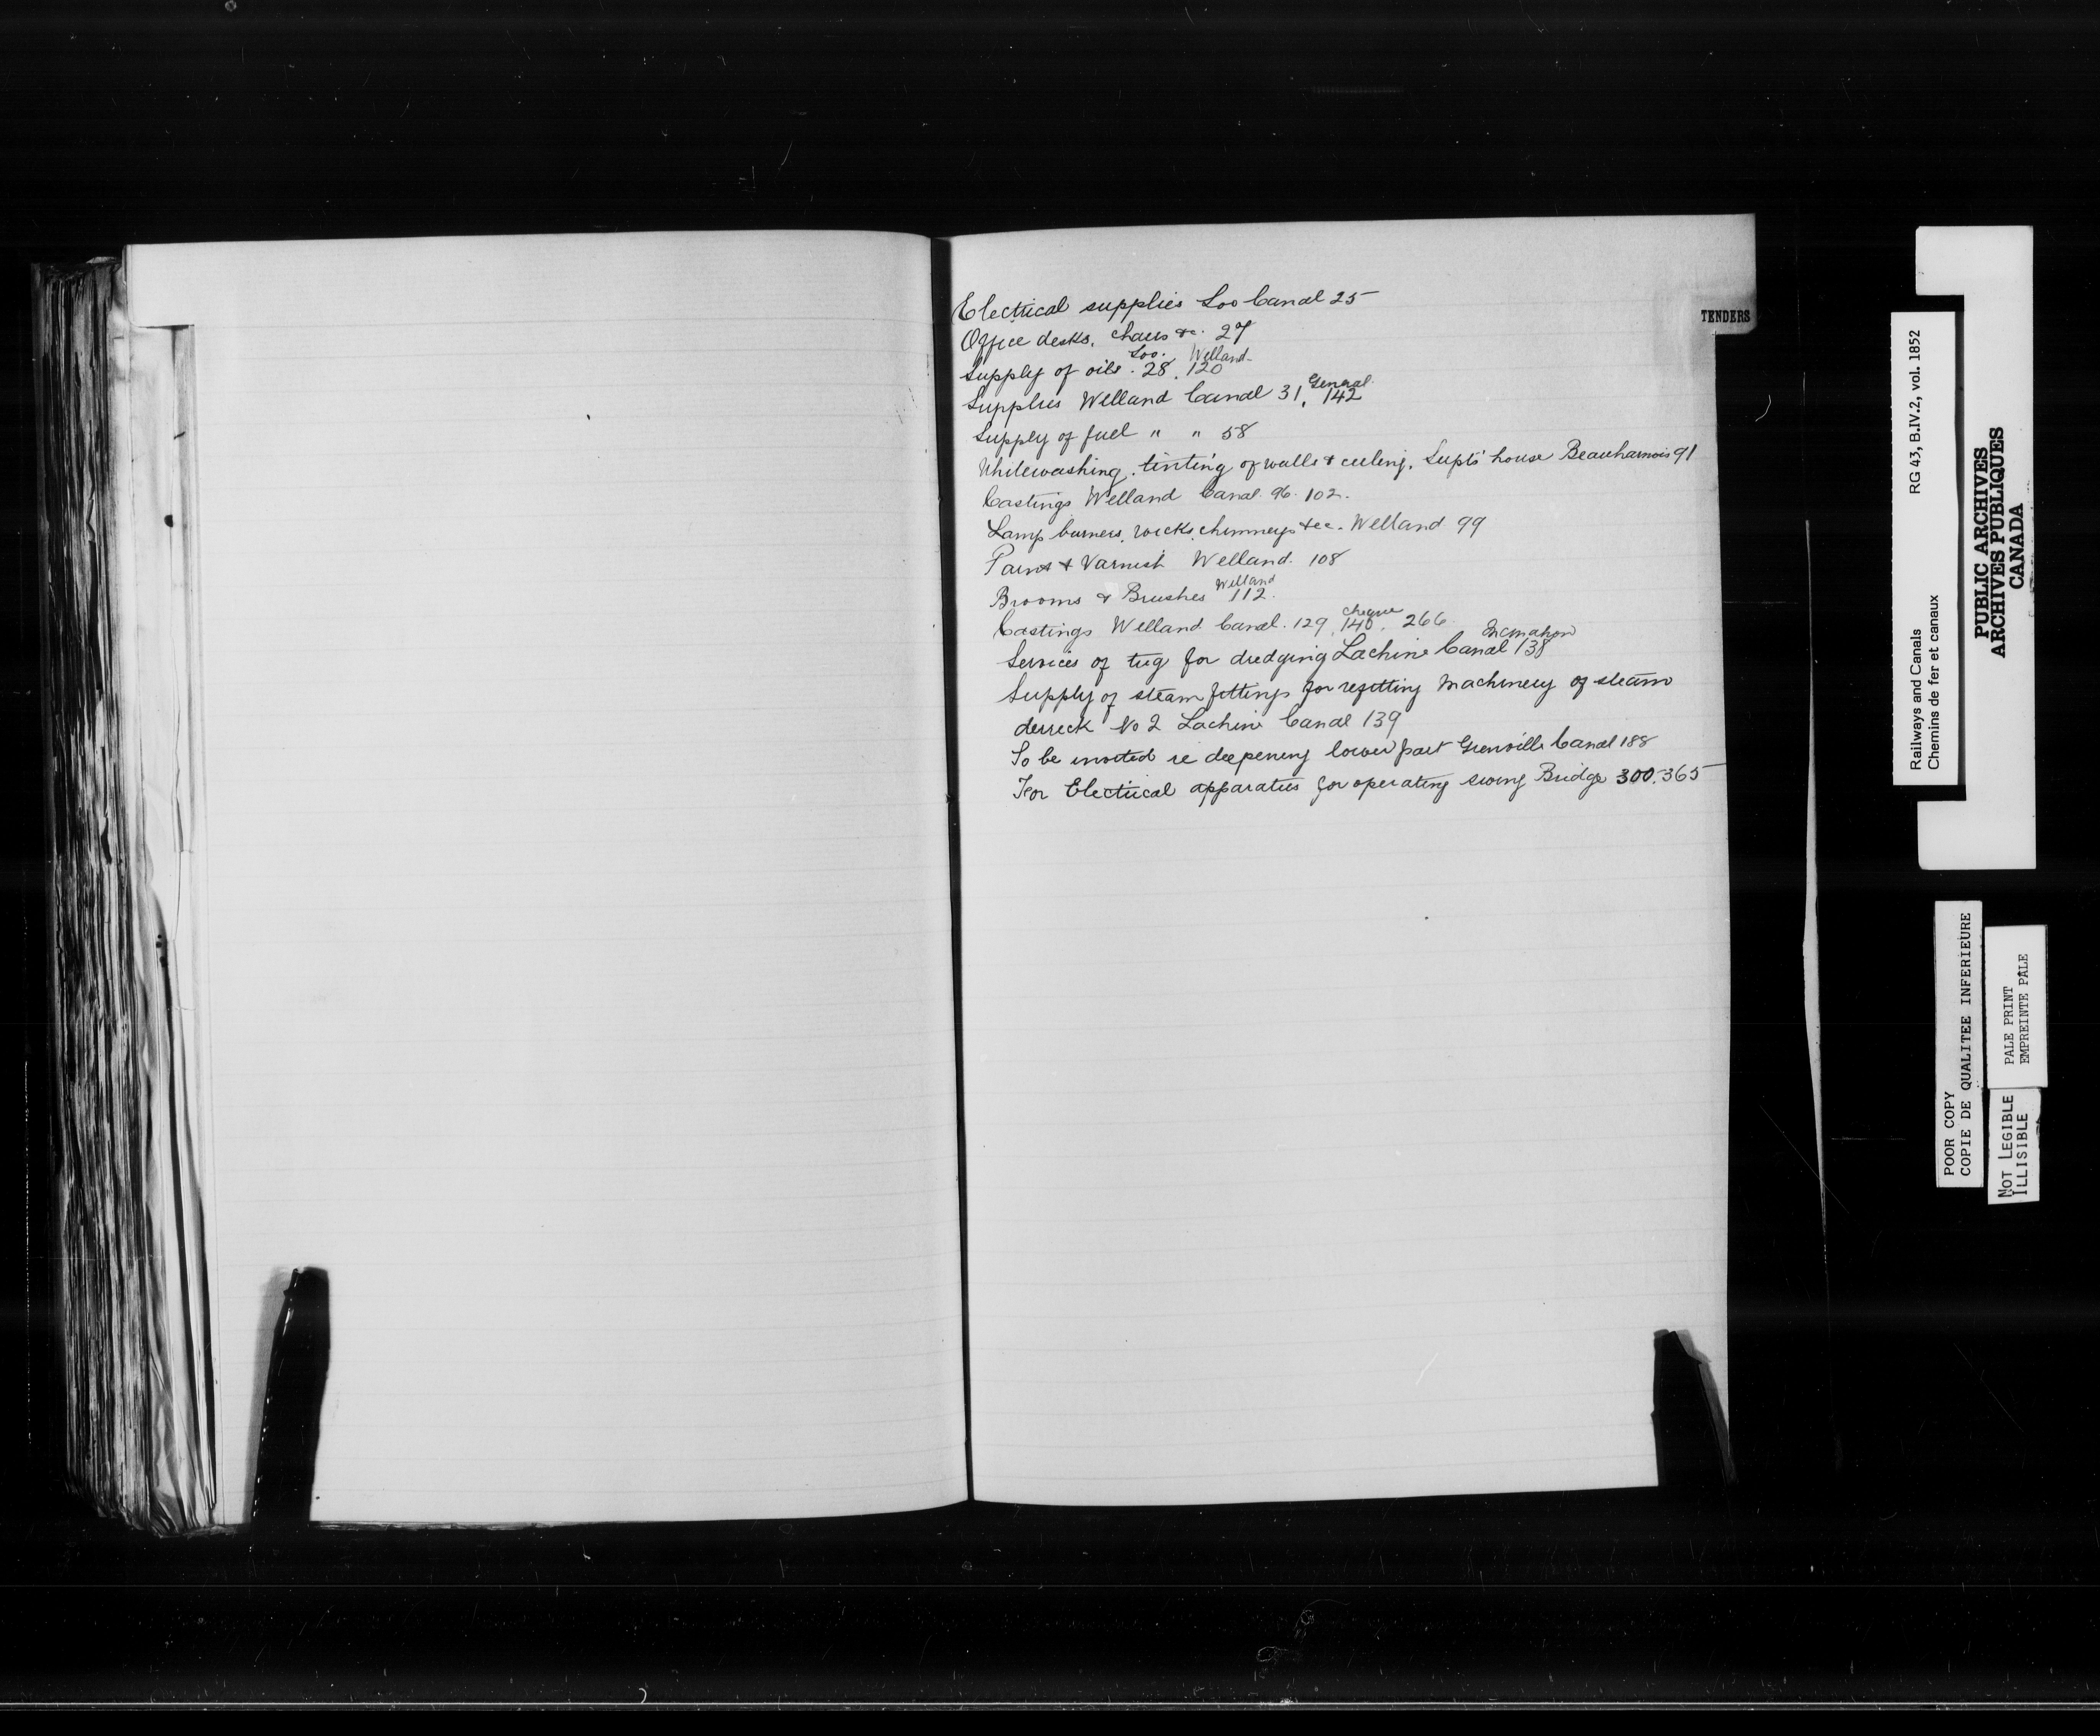 Electrical supplies Soo Canal 25
Office desks, chairs &c. 27
Soo. Welland
Supply of oils. 28. 120
General
Supplies Welland Canal 31, 142
Supply of fuel " " 58
Whitewashing, tinting of walls & ceiling, Supts' house Beauharnois 91
Castings Welland Canal. 96. 102.
Lamp burners, wicks, chimneys &c. Welland 99
Paint & Varnish Welland. 108
Welland
Brooms & Brushes 112.
cheque
Castings Welland Canal. 129, 140, 266
McMahon
Services of tug for dredging Lachine Canal 138
Supply of steam fittings for refitting machinery of steam
derreck No 2 Lachine Canal 139
To be invited re deepening lower part Grenville Canal 188
For Electrical apparatus for operating swing Bridge 300. 365
TENDERS
RG 43, B.IV.2, vol. 1852
Railways and Canals
Chemins de fer et canaux
PUBLIC ARCHIVES
ARCHIVES PUBLIQUES
CANADA
POOR COPY
COPIE DE QUALITEE INFERIEURE
PALE PRINT
EMPREINTE PÂLE
NOT LEGIBLE
ILLISIBLE